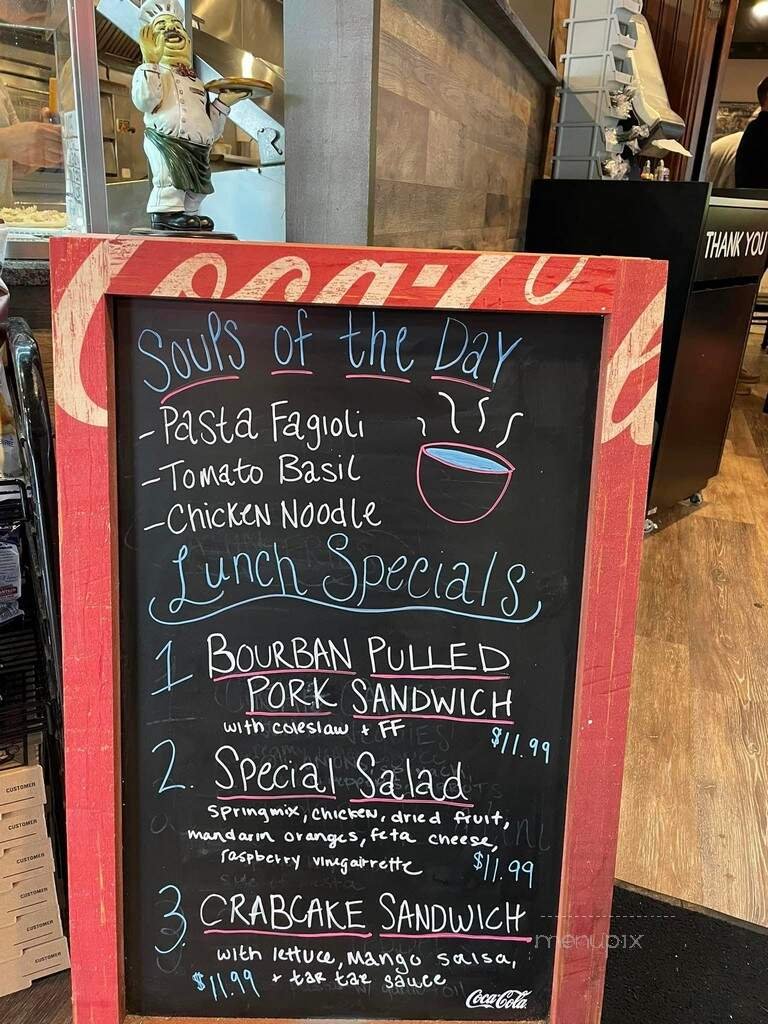 THANK YOU
Coca-Co
Soups of the Day
- Pasta Fagioli
- Tomato Basil
- Chicken Noodle
Lunch Specials
1. BOURBAN PULLED
PORK SANDWICH
with coleslaw + FF
$11.99
2. Special Salad
springmix, chicken, dried fruit,
mandarin oranges, feta cheese,
raspberry vinegairrette
$11.99
3. CRABCAKE SANDWICH
with lettuce, Mango salsa,
+ tar tar sauce
$11.99
Coca-Cola
menupix
CUSTOMER
CUSTOMER
CUSTOMER
CUSTOMER
CUSTOMER
CUSTOMER